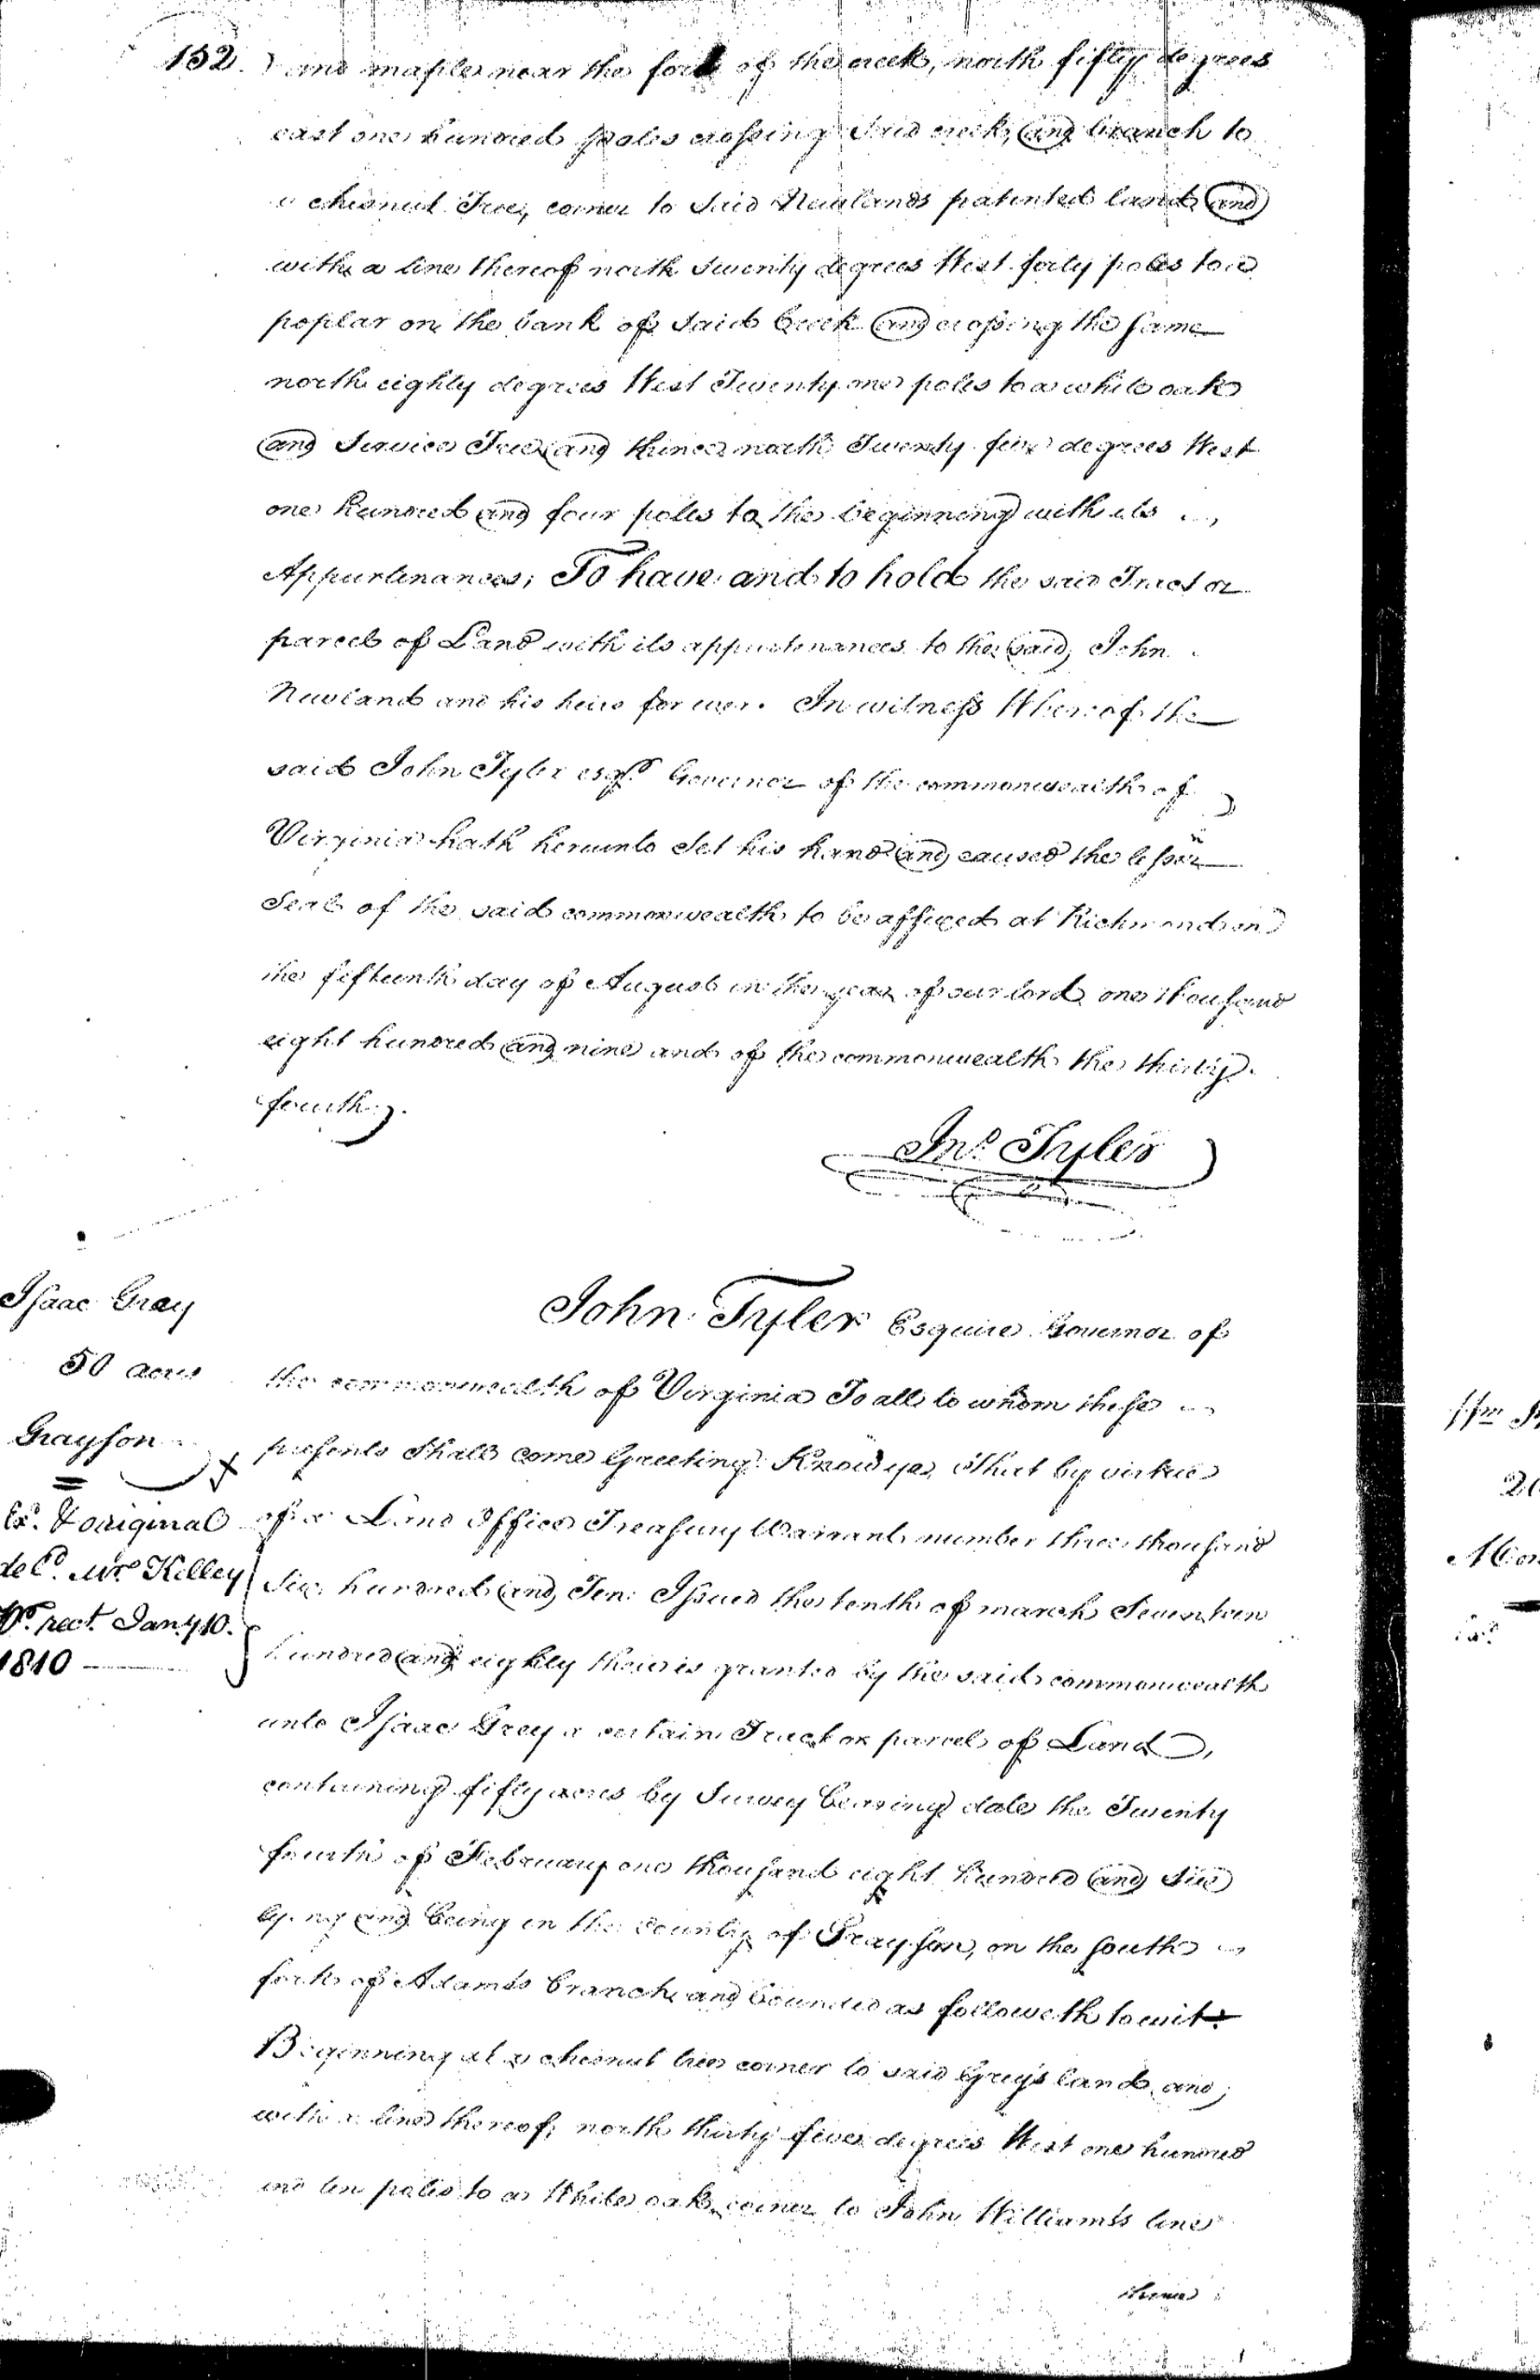 152.
and maples near the fork of the creek, north fifty degrees
east one hundred poles crossing said creek, and branch to
a chesnut Tree, corner to said Newlands patented land and
with a line thereof north Twenty degrees West forty poles to a
poplar on the bank of said Creek and crossing the same
north eighty degrees West Twenty one poles to a white oak
and Service Tree and thence north Twenty five degrees West
one hundred and four poles to the beginning with its
Appurtenances; To have and to hold the said Tract or
parcel of Land with its appurtenances to the said, John
Newland and his heirs forever. In witness Whereof the
said John Tyler esqr. Governor of the commonwealth of
Virginia hath hereunto Set his hand and caused the lesser
Seal of the said commonwealth to be affixed at Richmond on
the fifteenth day of August in the year of our lord one thousand
eight hundred and nine and of the commonwealth the thirty
fourth.
Jno. Tyler
Isaac Gray
50 acres
Grayson
Ex.d & original
deld. Mr. Kelley
pr. rect. Jany 10.
1810
John Tyler Esquire Governor of
the commonwealth of Virginia To all to whom these
presents Shall come Greeting: Know ye, That by virtue
of a Land Office Treasury Warrant number three thousand
Six hundred and Ten: Issued the tenth of march Seventeen
hundred and eighty there is granted by the said commonwealth
unto Isaac Grey a certain Tract or parcel of Land,
containing fifty acres by Survey bearing date the Twenty
fourth of February one thousand eight hundred and Six
lying and being in the County of Grayson, on the South
fork of Adams's branch and bounded as followeth to wit:
Beginning at a chesnut tree corner to said Grey's land and
with a line thereof; north thirty five degrees West one hundred
and ten poles to a White oak corner to John Williams's line
thence